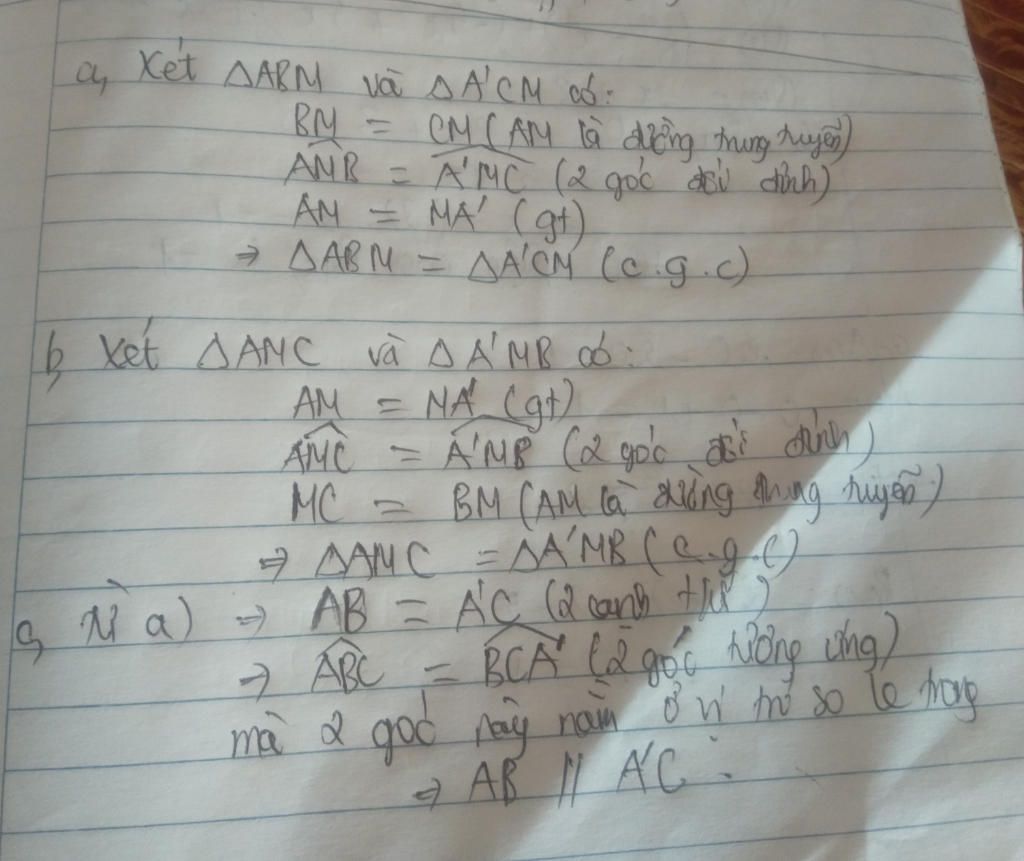 a, Xét ΔABM và ΔA'CM có:
BM = CM (AM là đường trung tuyến)
\widehat{AMB} = \widehat{A'MC} (2 góc đối đỉnh)
AM = MA' (gt)
⇒ ΔABM = ΔA'CM (c.g.c)
b, Xét ΔAMC và ΔA'MB có:
AM = MA' (gt)
\widehat{AMC} = \widehat{A'MB} (2 góc đối đỉnh)
MC = BM (AM là đường trung tuyến)
⇒ ΔAMC = ΔA'MB (c.g.c)
c, Từ a) ⇒ AB = A'C (2 cạnh t/ư)
⇒ \widehat{ABC} = \widehat{BCA'} (2 góc tương ứng)
mà 2 góc này nằm ở vị trí so le trong
⇒ AB // A'C.